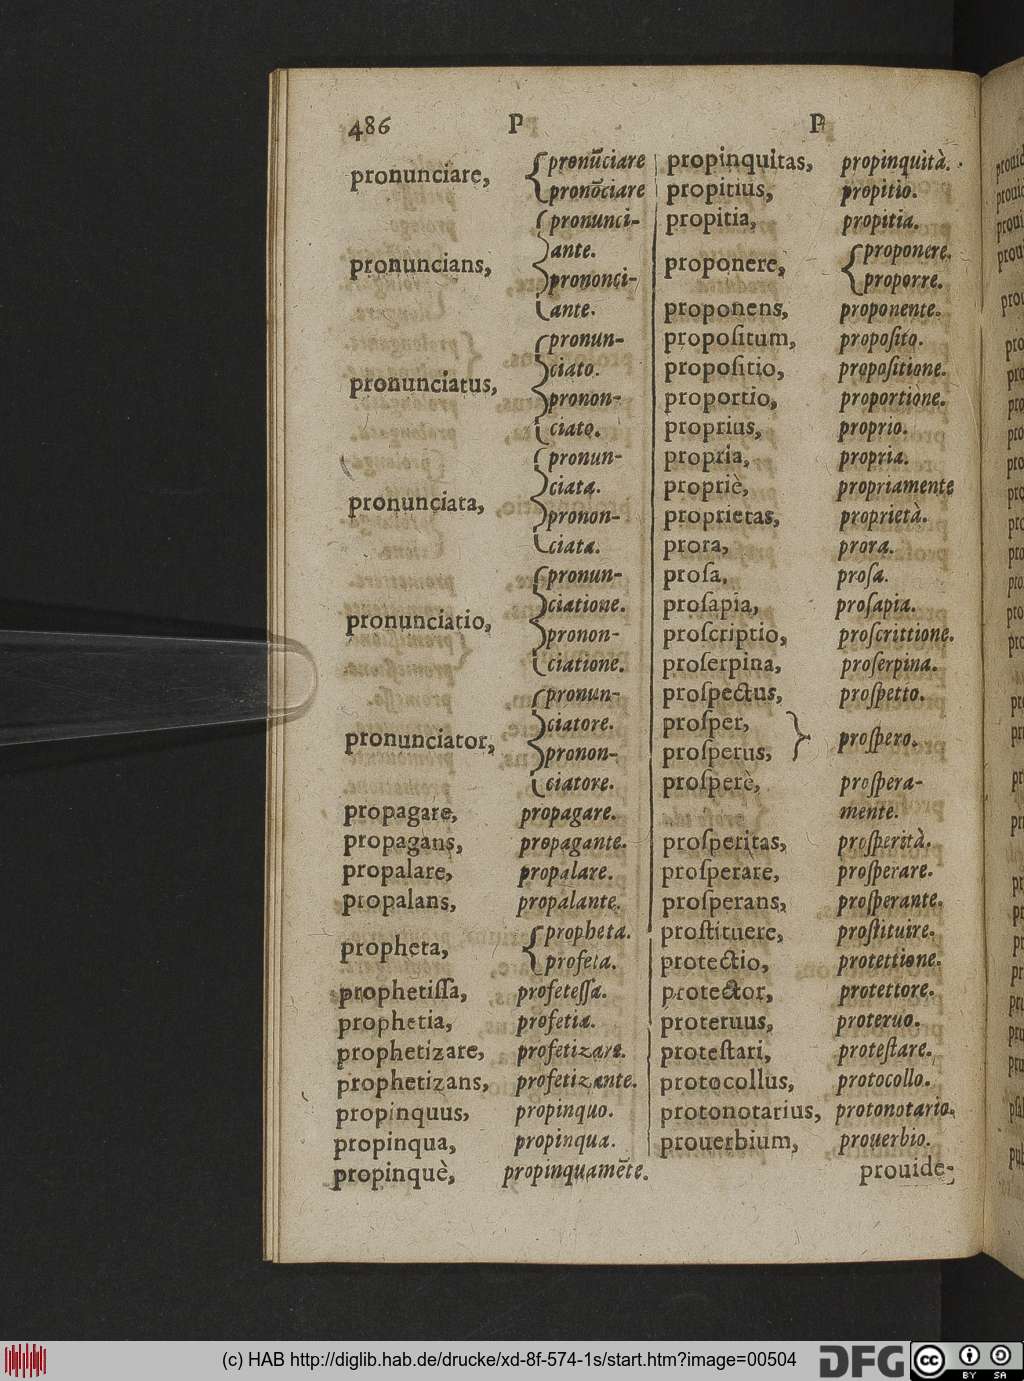 486 P P
pronunciare, { pronūciare
pronōciare
pronuncians, { pronunci-
ante.
prononci-
ante.
pronunciatus, { pronun-
ciato.
pronon-
ciato.
pronunciata, { pronun-
ciata.
pronon-
ciata.
pronunciatio, { pronun-
ciatione.
pronon-
ciatione.
pronunciator, { pronun-
ciatore.
pronon-
ciatore.
propagare, propagare.
propagans, propagante.
propalare, propalare.
propalans, propalante.
propheta, { propheta.
profeta.
prophetiſſa, profeteſſa.
prophetia, profetia.
prophetizare, profetizare.
prophetizans, profetizante.
propinquus, propinquo.
propinqua, propinqua.
propinquè, propinquamēte.
propinquitas, propinquità.
propitius, propitio.
propitia, propitia.
proponere, { proponere.
proporre.
proponens, proponente.
propoſitum, propoſito.
propoſitio, propoſitione.
proportio, proportione.
proprius, proprio.
propria, propria.
propriè, propriamente
proprietas, proprietà.
prora, prora.
proſa, proſa.
proſapia, proſapia.
proſcriptio, proſcrittione.
proſerpina, proſerpina.
proſpectus, proſpetto.
proſper,
proſperus, } proſpero.
proſperè, proſpera-
mente.
proſperitas, proſperità.
proſperare, proſperare.
proſperans, proſperante.
proſtituere, proſtituire.
protectio, protettione.
protector, protettore.
proteruus, proteruo.
proteſtari, proteſtare.
protocollus, protocollo.
protonotarius, protonotario.
prouerbium, prouerbio.
prouide-
(c) HAB http://diglib.hab.de/drucke/xd-8f-574-1s/start.htm?image=00504 DFG cc BY SA